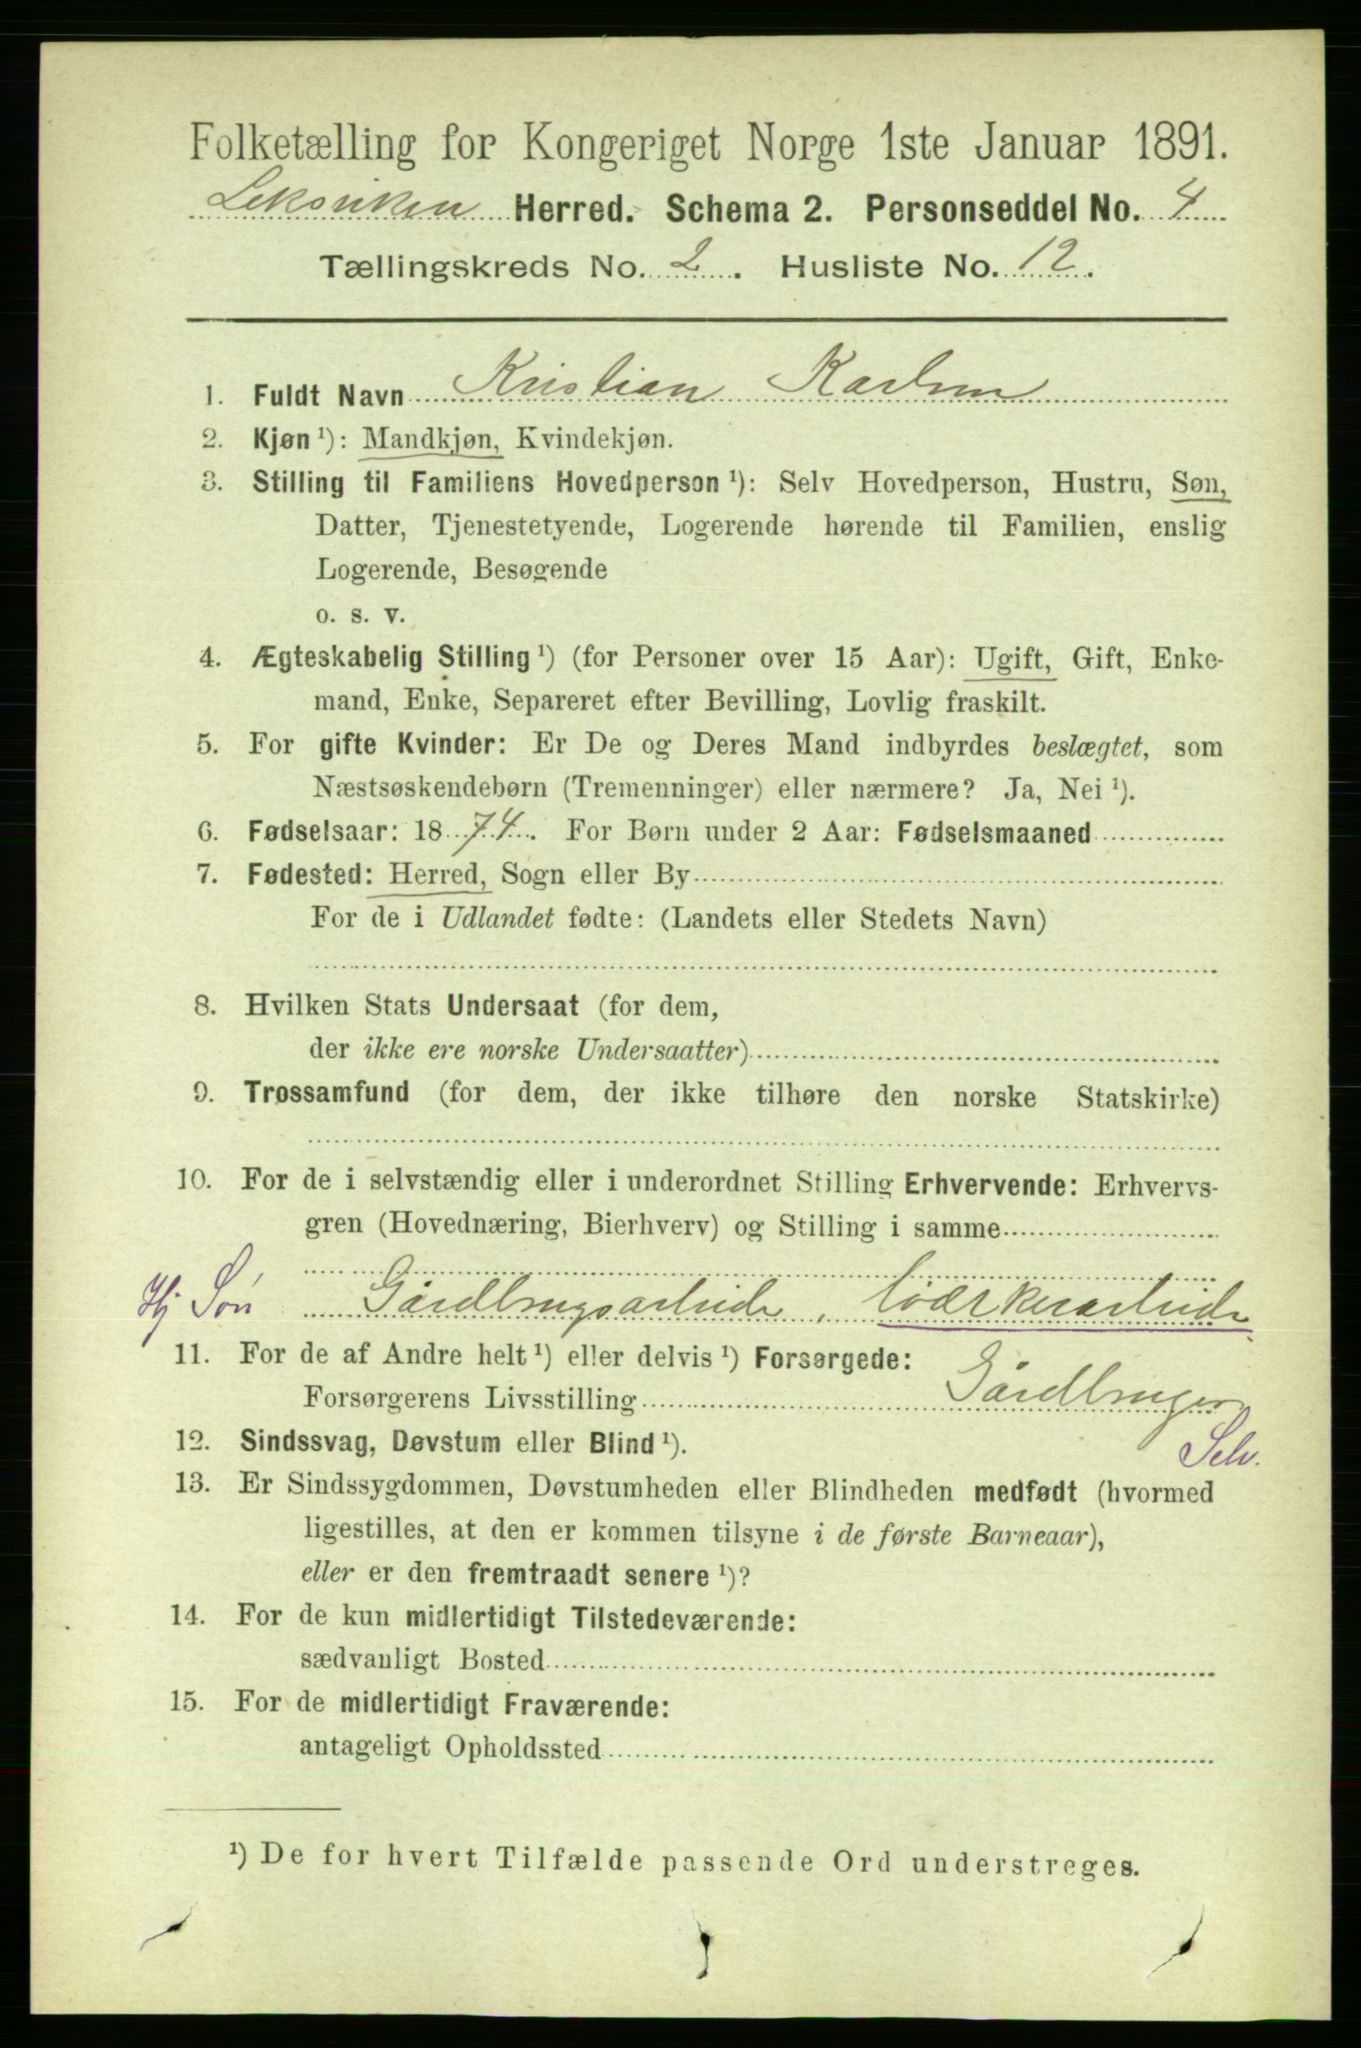 Folketælling for Kongeriget Norge 1ste Januar 1891.
Leksviken Herred. Schema 2. Personseddel No. 4
Tællingskreds No. 2. Husliste No. 12.
1. Fuldt Navn Kristian Karlsen
2. Kjøn ¹): Mandkjøn, Kvindekjøn.
3. Stilling til Familiens Hovedperson ¹): Selv Hovedperson, Hustru, Søn,
Datter, Tjenestetyende, Logerende hørende til Familien, enslig
Logerende, Besøgende
o. s. v.
4. Ægteskabelig Stilling ¹) (for Personer over 15 Aar): Ugift, Gift, Enke-
mand, Enke, Separeret efter Bevilling, Lovlig fraskilt.
5. For gifte Kvinder: Er De og Deres Mand indbyrdes beslægtet, som
Næstsøskendebørn (Tremenninger) eller nærmere? Ja, Nei ¹).
6. Fødselsaar: 1874. For Børn under 2 Aar: Fødselsmaaned
7. Fødested: Herred, Sogn eller By
For de i Udlandet fødte: (Landets eller Stedets Navn)
8. Hvilken Stats Undersaat (for dem,
der ikke ere norske Undersaatter)
9. Trossamfund (for dem, der ikke tilhøre den norske Statskirke)
10. For de i selvstændig eller i underordnet Stilling Erhvervende: Erhvervs-
gren (Hovednæring, Bierhverv) og Stilling i samme
Hj Søn Gårdbrugsarbeide,
11. For de af Andre helt ¹) eller delvis ¹) Forsørgede:
Forsørgerens Livsstilling Gårdbruger
12. Sindssvag, Døvstum eller Blind ¹). Selv.
13. Er Sindssygdommen, Døvstumheden eller Blindheden medfødt (hvormed
ligestilles, at den er kommen tilsyne i de første Barneaar),
eller er den fremtraadt senere ¹)?
14. For de kun midlertidigt Tilstedeværende:
sædvanligt Bosted
15. For de midlertidigt Fraværende:
antageligt Opholdssted
¹) De for hvert Tilfælde passende Ord understreges.